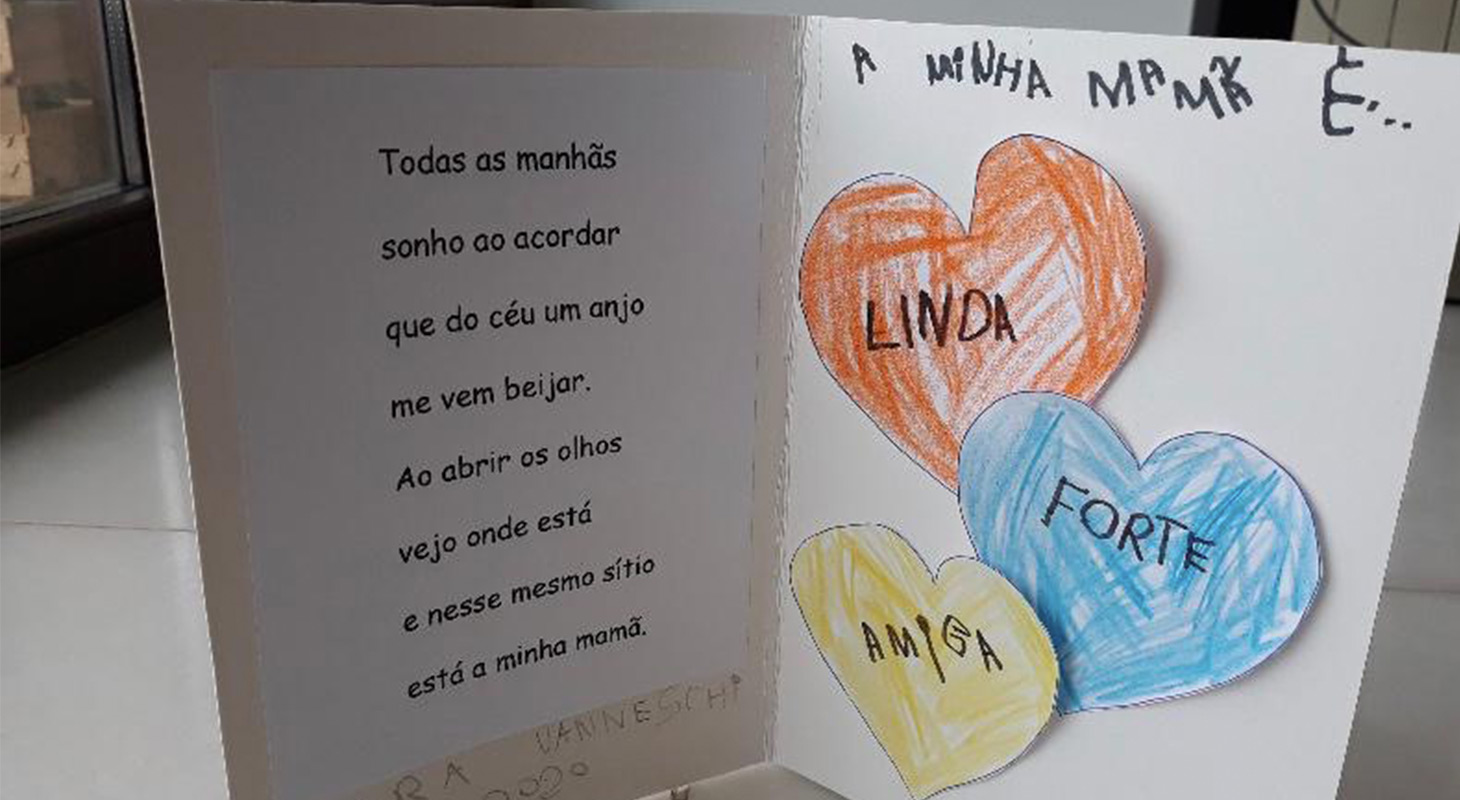 Todas as manhãs
sonho ao acordar
que do céu um anjo
me vem beijar.
Ao abrir os olhos
vejo onde está
e nesse mesmo sítio
está a minha mamã.
VANNESCHI
2020
A MINHA MAMÃ É...
LINDA
FORTE
AMIGA